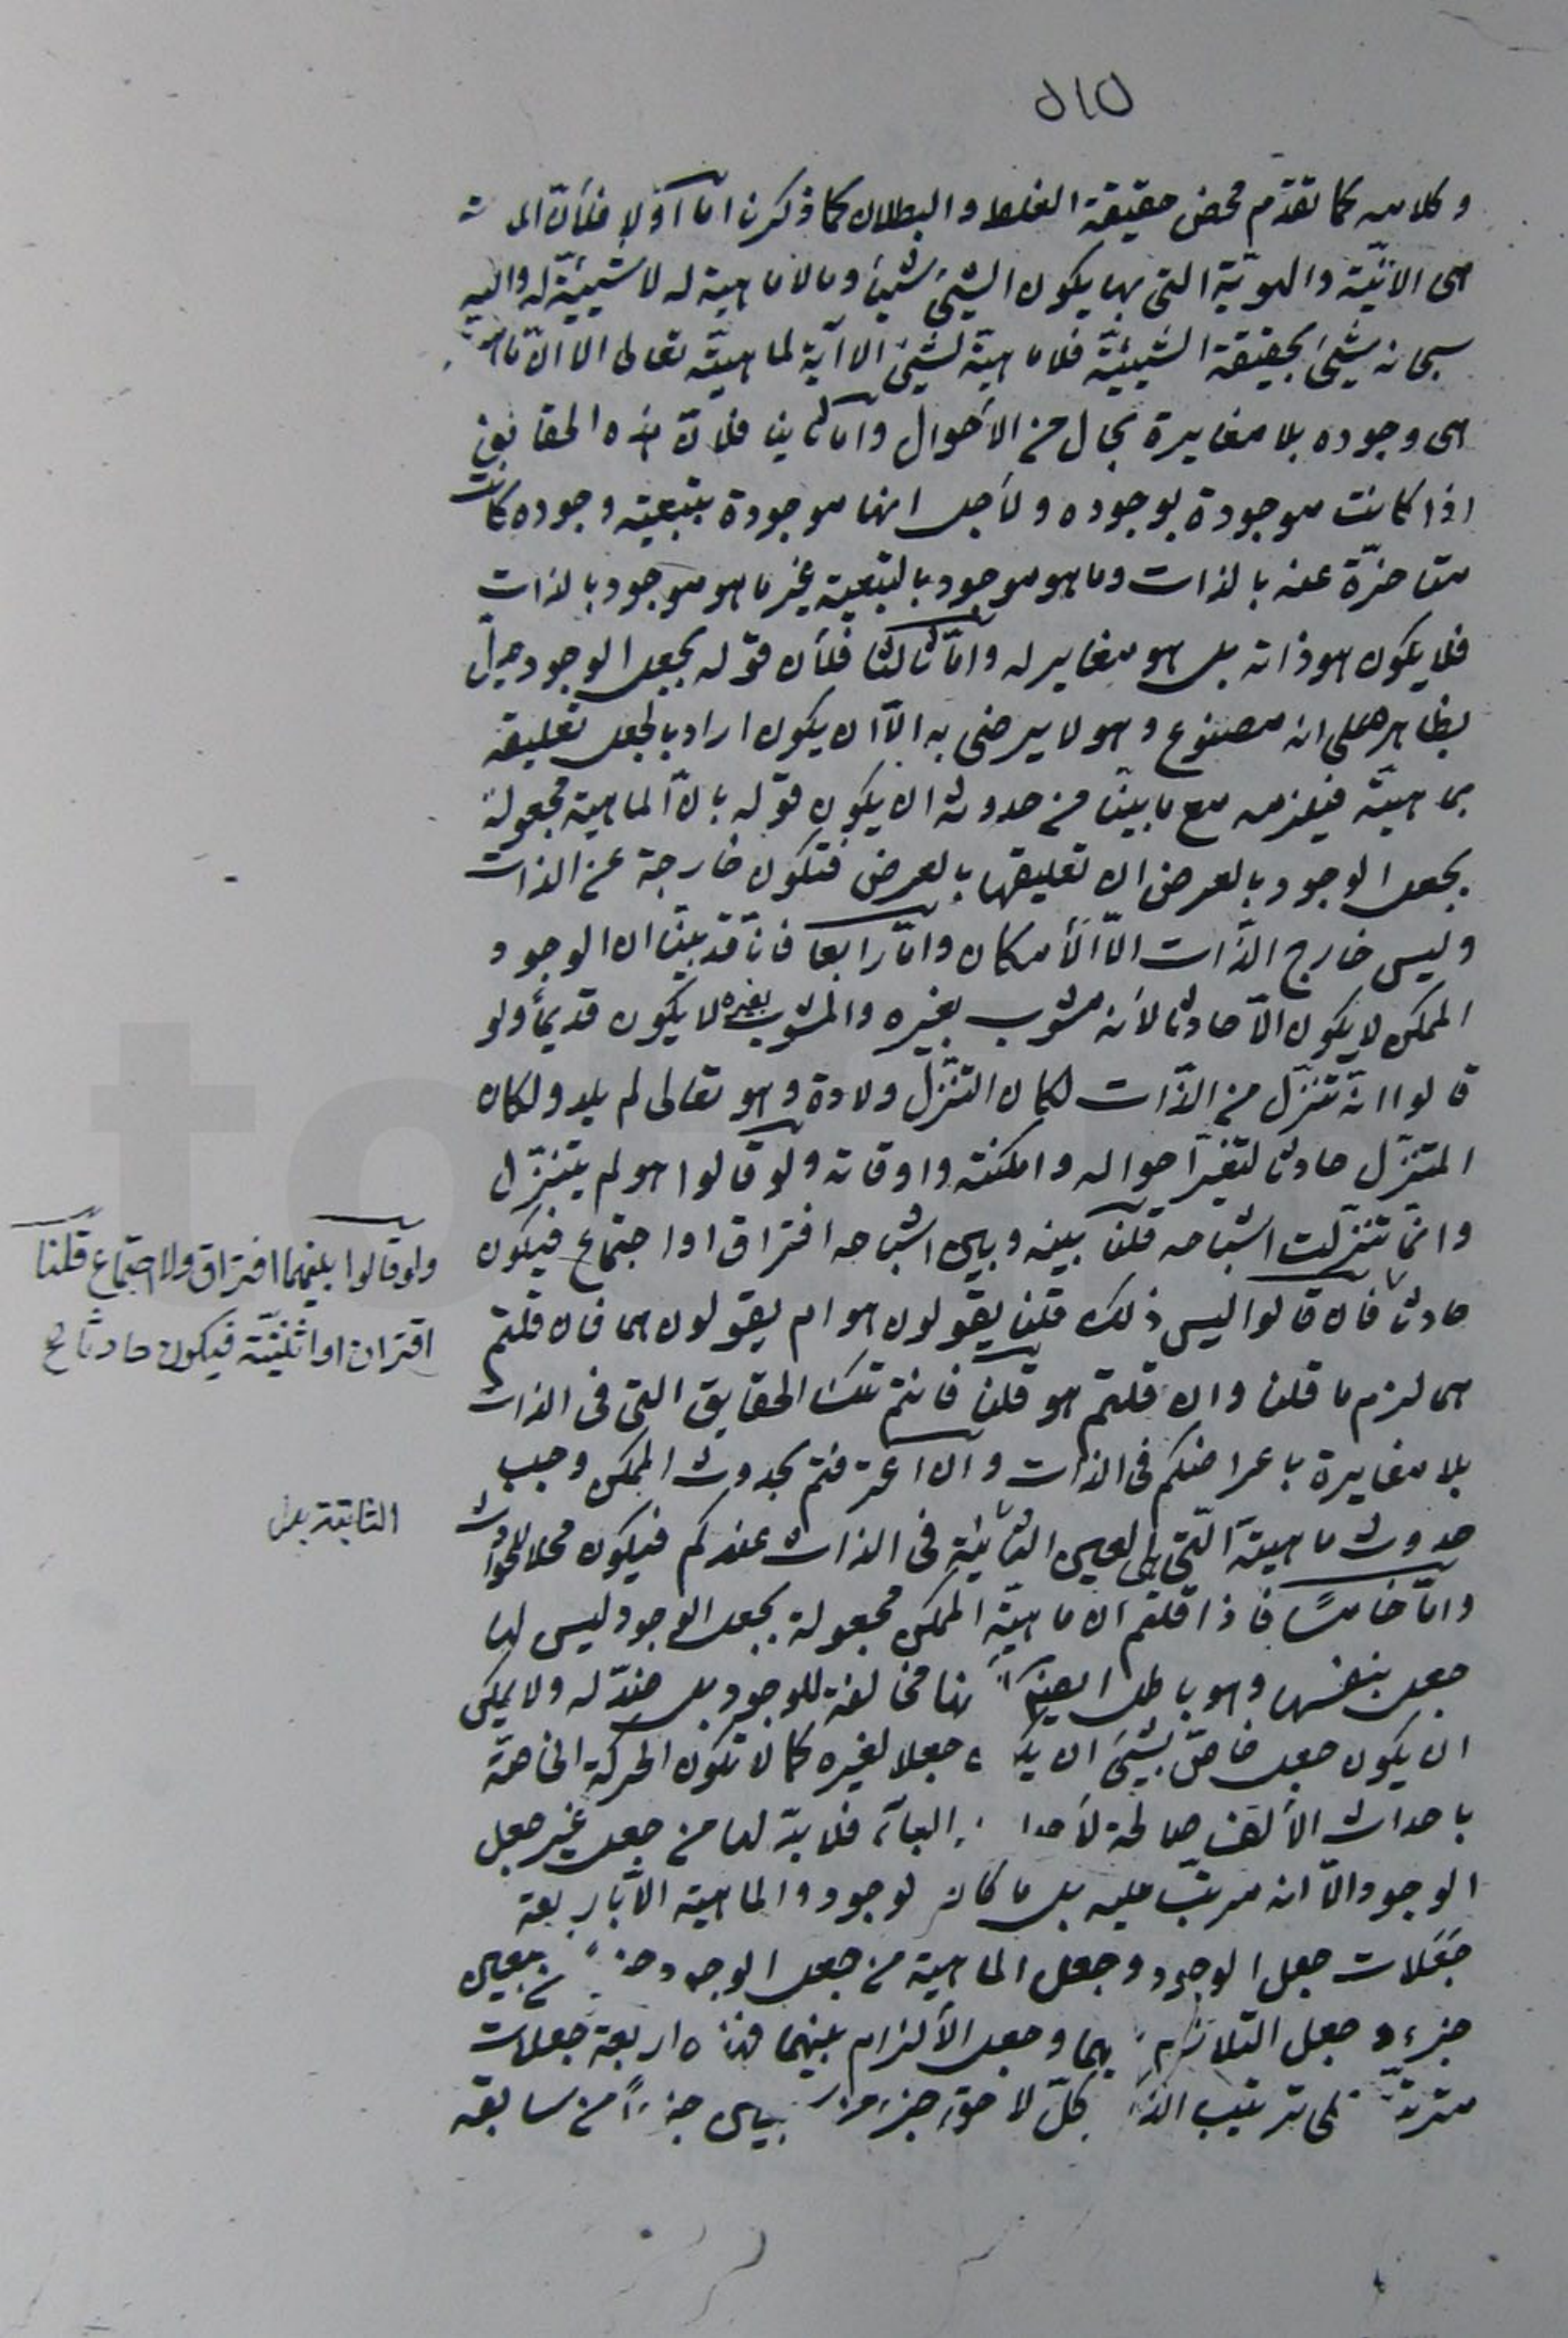 ٥١٥
وكلامه كما تقدّم محض حقيقة الغلط والبطلان كما ذكرنا امّا اوّلا فلأنّ الما
هى الانيّة والهويّة التى بها يكون الشيئ شيئا وما لا ماهية له لا شيئيّة له والله
سبحانه شيئ بحقيقة الشيئيّة فلا ماهيّة لشيئ الا آية لماهيّته تعالى الا انّ ماهيته
هى وجوده بلا مغايرة بحال من الأحوال وامّا ثانيا فلانّ هذه الحقايق
اذا كانت موجودة بوجوده ولأجل انها موجودة بتبعيّة وجوده كانت
متأخرّة عنه بالذات وما هو موجود بالتبعية غير ما هو موجود بالذات
فلا يكون هو ذاته بل هو مغاير له وامّا ثالثا فلأن قوله بجعل الوجود يدلّ
بظاهره على انه مصنوع وهو لا يرضى به الاّ ان يكون اراد بالجعل تعليقه
بماهيّة فيلزمه مع ما بيّنّا من حدوثه ان يكون قوله بانّ الماهية مجعولة
بجعل الوجود بالعرض ان تعليقها بالعرض فتكون خارجة عن الذات
وليس خارج الذّات الاّ الأمكان وامّا رابعا فانّا قد بيّنّا ان الوجود
الممكن لا يكون الاّ حادثا لأنه مشوب بغيره والمشوب بغيره لا يكون قديماً ولو
قالوا انّه تنزّل من الذّات لكان التنزّل ولادة وهو تعالى لم يلد ولكان
المتنزّل حادثا لتغيّر احواله وامكنته واوقاته ولو قالوا هو لم يتنزّل
وانمّا تنزّلت اشباحه قلنا بينه وبين اشباحه افتراق او اجتماع فيكون
حادثا فان قالوا ليس ذلك قلنا يقولون هو ام يقولون هى فان قلتم
هى لزم ما قلنا وان قلتم هو قلنا فانتم تلك الحقايق التى فى الذات
بلا مغايرة باعراضكم فى الذات وان اعترفتم بحدوث الممكن وجب
حدوث ماهيّته الّتى هى العين الثابتة فى الذات عندكم فيكون محلا للحوادث
وامّا خامسًا فاذا قلتم ان ماهيّة الممكن مجعولة بجعل الوجود ليس لها
جعل بنفسها وهو باطل ايضا لأنها مخالفة للوجود بل ضدّ له ولا يمكن
ان يكون جعل خاصّ بشيئ ان يكون جعلا لغيره كما لا تكون الحركة الخاصّة
باحداث الألف صالحة لأحداث الباء فلا بدّ لها من جعل غير جعل
الوجود الاّ انه مرتّب عليه بل ما كان الوجود والماهية الاّ باربعة
جَعَلات جعل الوجود وجعل الماهية من جعل الوجود
جزء وجعل التلازم بينهما وجعل الألزام بينهما فهذه اربعة جعلات
مترتّبة على ترتيب الذكر كلّ لاحق جزء من سبعين جزءاً من سابقه
ولو قالوا بينهما افتراق ولا اجتماع قلنا
اقتران او اثنينيّة فيكون حادثا صح
الثابتة بدل